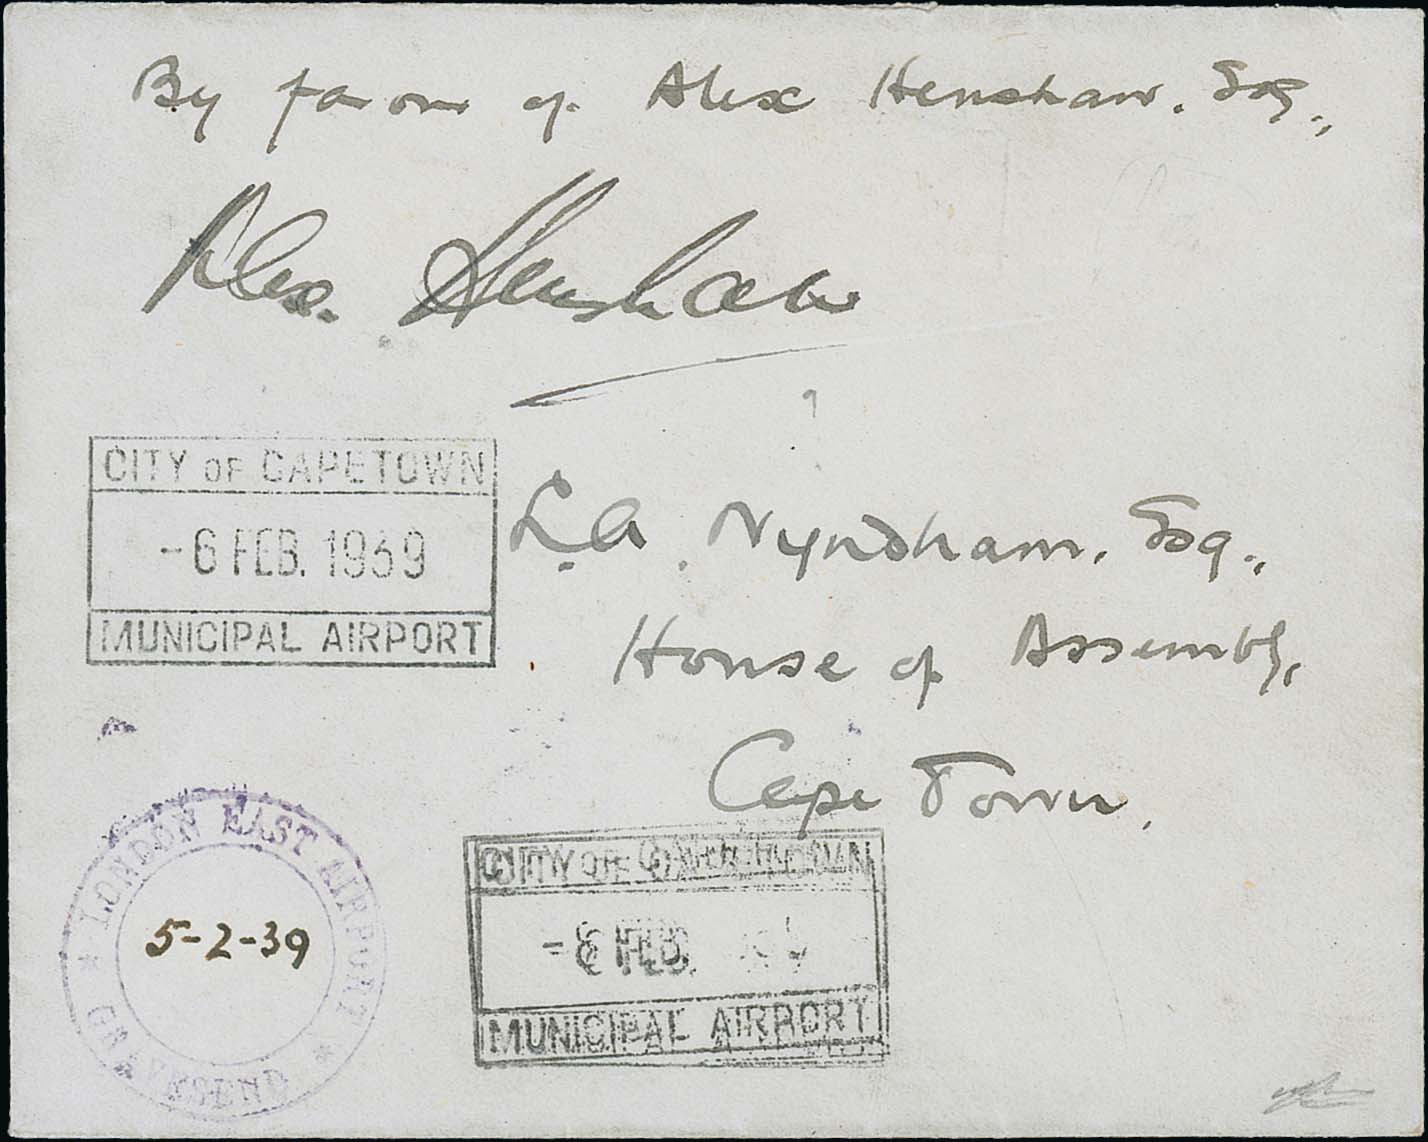 By favour of Alex Henshaw. Esq.,
Alex. Henshaw
CITY OF CAPETOWN
-6 FEB. 1939
MUNICIPAL AIRPORT
L.A. Wyndham. Esq.,
House of Assembly,
Cape Town.
LONDON EAST AIRPORT
* GRAVESEND *
5-2-39
CITY OF CAPETOWN
-6 FEB.
MUNICIPAL AIRPORT